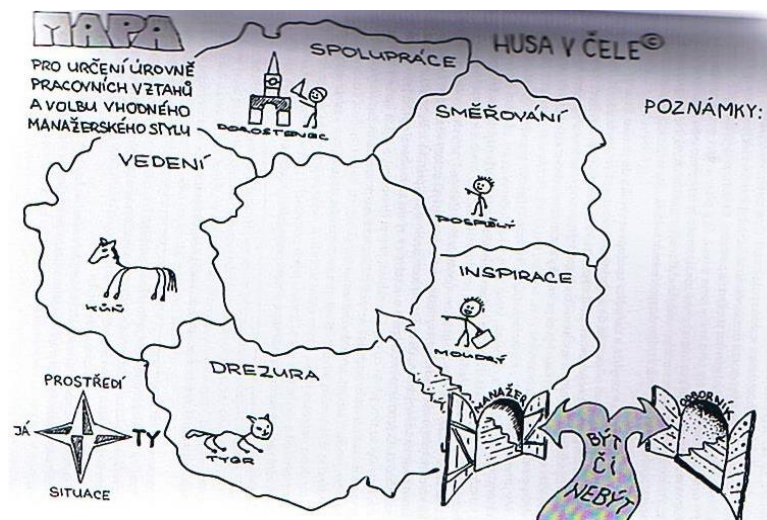 MAPA
PRO URČENÍ ÚROVNĚ
PRACOVNÍCH VZTAHŮ
A VOLBU VHODNÉHO
MANAŽERSKÉHO STYLU
SPOLUPRÁCE
HUSA V ČELE©
DOROSTENEC
SMĚŘOVÁNÍ
POZNÁMKY:
VEDENÍ
DOSPĚLÝ
KŮŇ
INSPIRACE
MOUDRÝ
DREZURA
TYGR
PROSTŘEDÍ
JÁ
TY
SITUACE
MANAŽER
ODBORNÍK
BÝT
ČI
NEBÝT